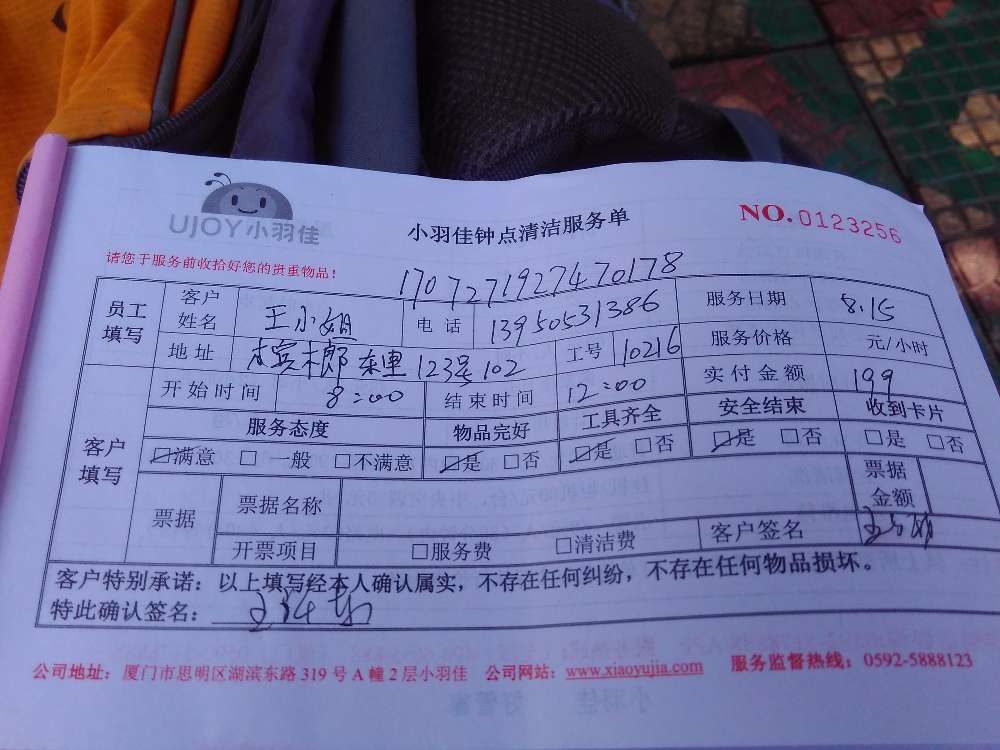 UJOY小羽佳
小羽佳钟点清洁服务单
NO.0123256
请您于服务前收拾好您的贵重物品！
1707271927470178
员工填写 客户姓名 王小姐 电话 13950531386 服务日期 8.15
地址 123号102 工号 10216 服务价格 元/小时
客户填写 开始时间 8:00 结束时间 12:00 实付金额 199
服务态度 物品完好 工具齐全 安全结束 收到卡片
☑满意 □一般 □不满意 ☑是 □否 ☑是 □否 ☑是 □否 □是 □否
票据 票据名称 票据金额
开票项目 □服务费 □清洁费 客户签名
客户特别承诺：以上填写经本人确认属实，不存在任何纠纷，不存在任何物品损坏。
特此确认签名：
公司地址：厦门市思明区湖滨东路319号A幢2层小羽佳 公司网站：www.xiaoyujia.com 服务监督热线：0592-5888123